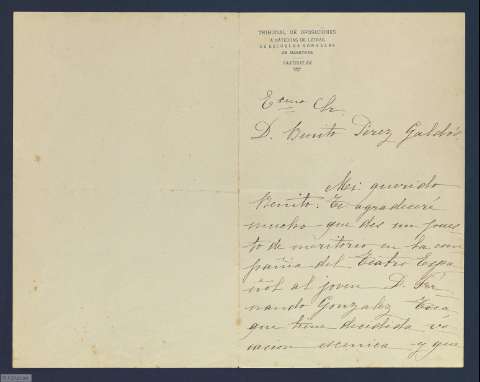 TRIBUNAL DE OPOSICIONES
A MATERIAS DE LETRAS
DE ESCUELAS NORMALES
DE MAESTROS
Exmo Sr.
D. Benito Pérez Galdós
Mi querido
Benito: Te agradeceré
mucho que des un pues-
to de meritorio en la com
pañia del Teatro Espa
ñol al joven D. Fer
nando Gonzalez
que tiene decidida vo
cacion escenica y que